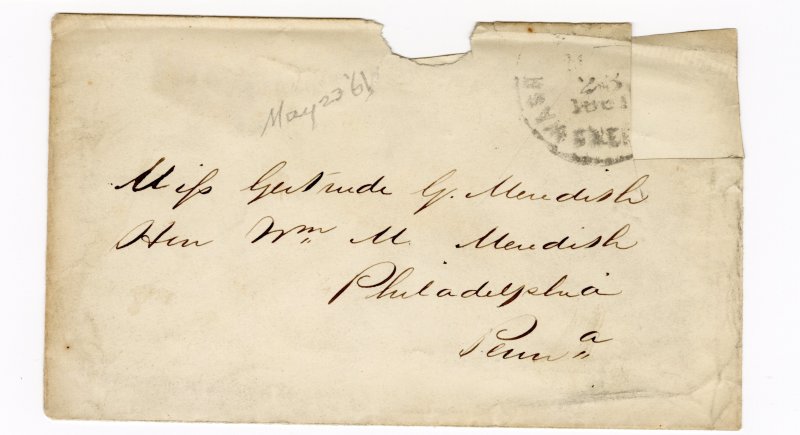 May 23 '61
WASH
1861
FREE
Miss Gertrude G. Meredith
Hon Wm M. Meredith
Philadelphia
Penna